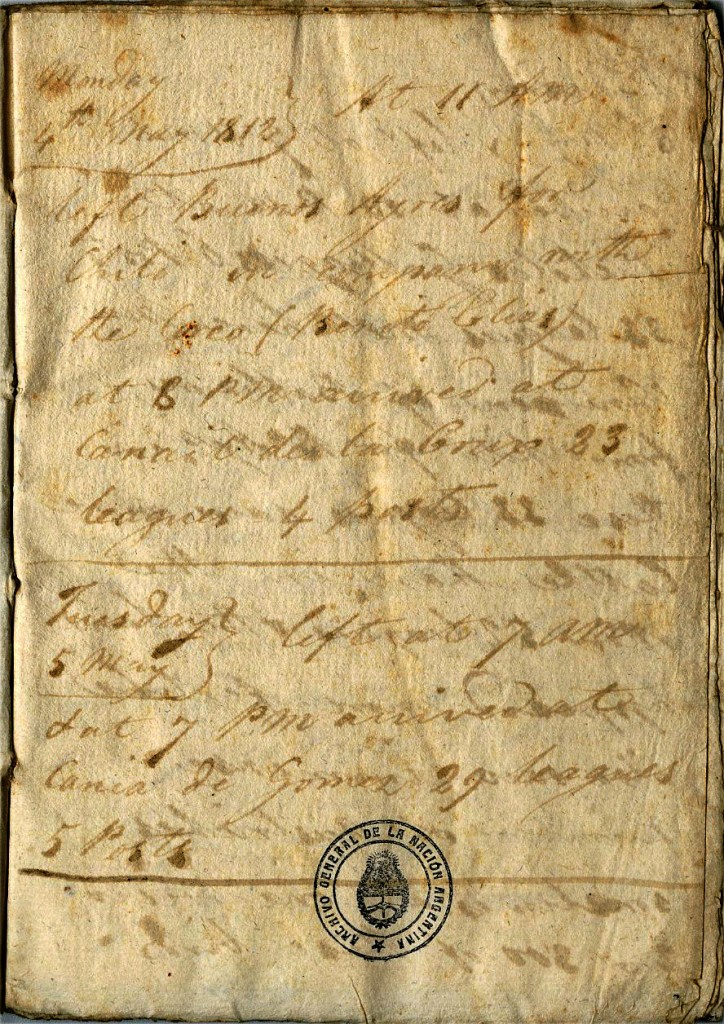 Monday
4th May 1812 At 11 AM
left Buenos Ayres for
Chile in company with
the
at 6 PM arrived at
de la Cruz 23
leagues 4 posts
Tuesday left at 7 AM
5 May
& at 7 PM arrived at
de Gomez 29 leagues
5 Posts
ARCHIVO GENERAL DE LA NACIÓN ARGENTINA